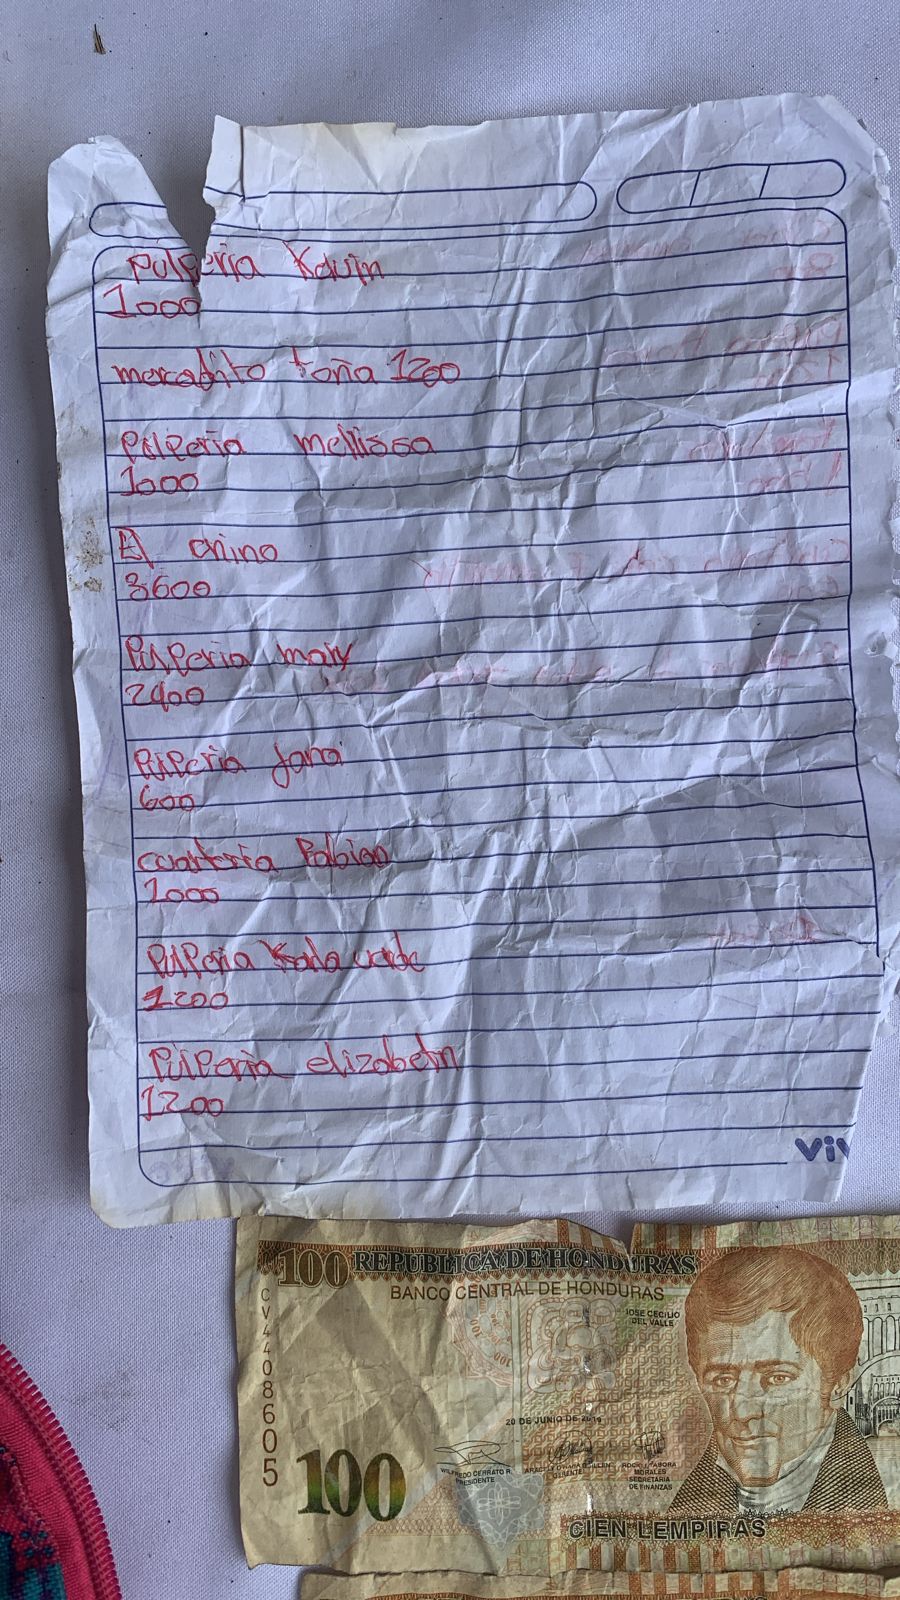 Pulperia Kevin
1000
mercadito toña 1200
Pulperia mellissa
1000
El chino
3600
Pulperia mary
2400
Pulperia
600
cuarteria Fabian
1000
Pulperia
1200
Pulperia elizabeth
1200
ViV
100 REPUBLICA DE HONDURAS
BANCO CENTRAL DE HONDURAS
JOSE CECILIO
DEL VALLE
CV4408605
20 DE JUNIO DE 2019
WILFREDO CERRATO R.
PRESIDENTE
GERENTE
MORALES
SECRETARIA
DE FINANZAS
100
CIEN LEMPIRAS